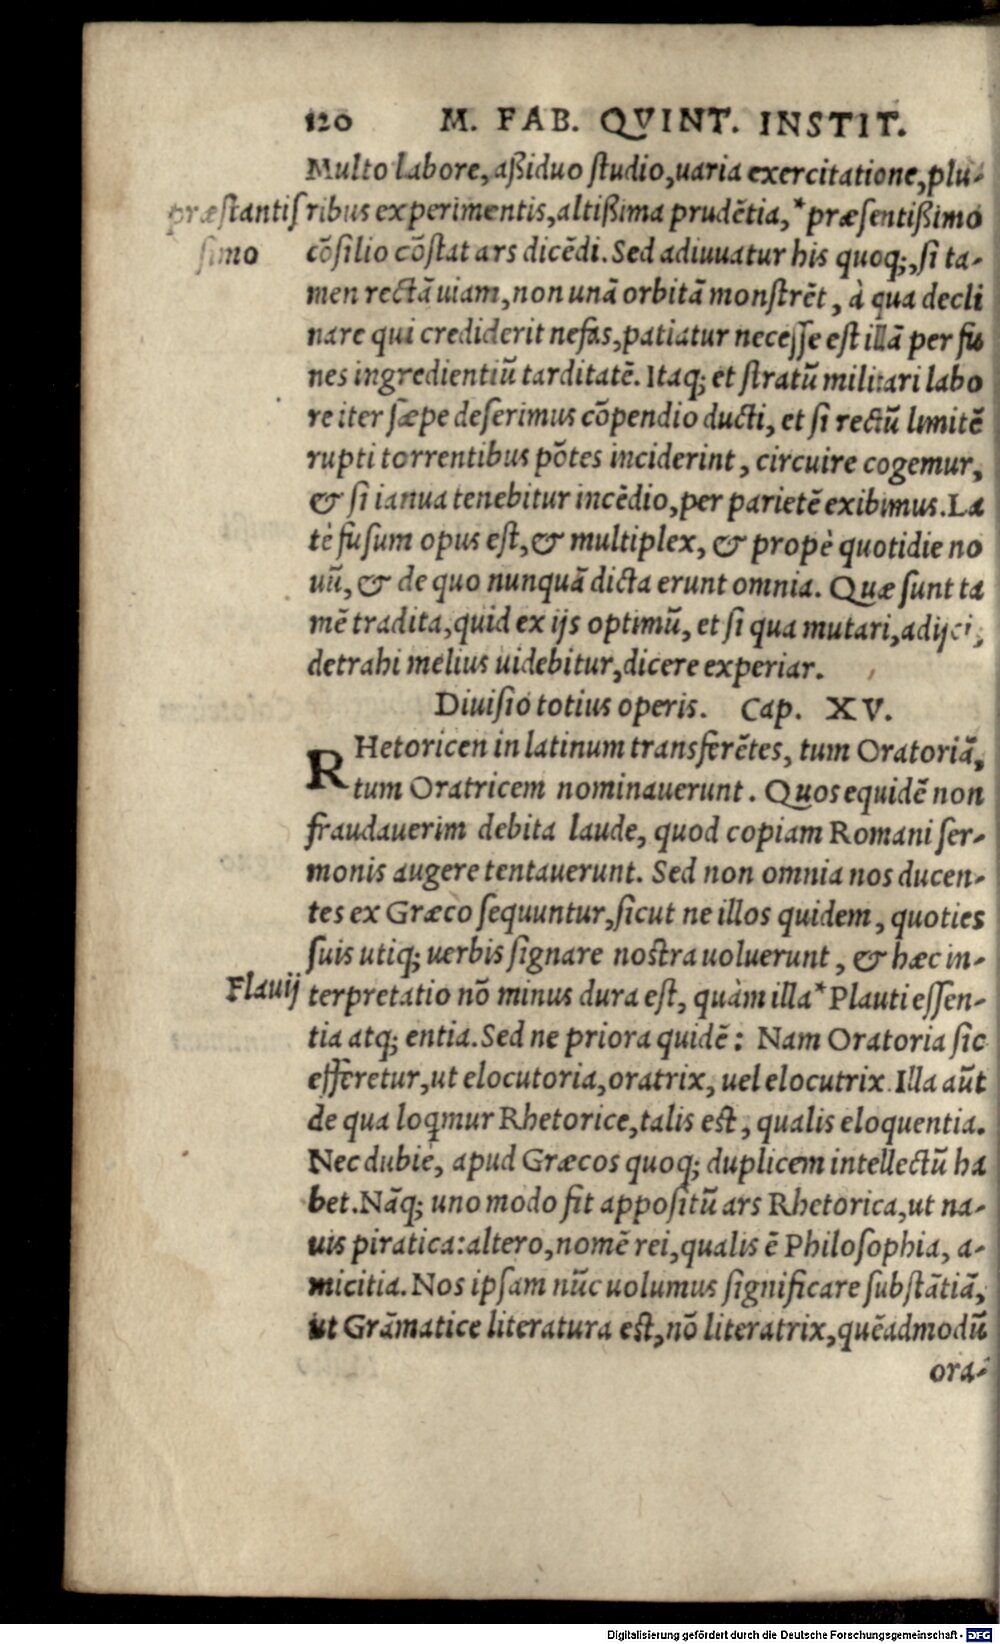 120 M. FAB. QVINT. INSTIT.
Multo labore, aßiduo ſtudio, uaria exercitatione, plu-
præstantiſ ribus experimentis, altißima prudētia, *præſentißimo
ſimo cōſilio cōſtat ars dicēdi. Sed adiuuatur his quoq;, ſi ta-
men rectā uiam, non unā orbitā monſtrēt, à qua decli
nare qui crediderit nefas, patiatur neceſſe eſt illā per fu
nes ingredientiū tarditatē. Itaq; et ſtratū militari labo
re iter ſæpe deſerimus cōpendio ducti, et ſi rectū limitē
rupti torrentibus pōtes inciderint, circuire cogemur,
& ſi ianua tenebitur incēdio, per parietē exibimus. La
tè fuſum opus eſt, & multiplex, & propè quotidie no
uū, & de quo nunquā dicta erunt omnia. Quæ ſunt ta
mē tradita, quid ex ijs optimū, et ſi qua mutari, adijci,
detrahi melius uidebitur, dicere experiar.
Diuiſio totius operis. Cap. XV.
RHetoricen in latinum transferētes, tum Oratoriā,
tum Oratricem nominauerunt. Quos equidē non
fraudauerim debita laude, quod copiam Romani ſer-
monis augere tentauerunt. Sed non omnia nos ducen-
tes ex Græco ſequuntur, ſicut ne illos quidem, quoties
ſuis utiq; uerbis ſignare nostra uoluerunt, & hæc in-
Flauij terpretatio nō minus dura eſt, quàm illa* Plauti eſſen-
tia atq; entia. Sed ne priora quidē: Nam Oratoria ſic
efferetur, ut elocutoria, oratrix, uel elocutrix. Illa aūt
de qua loqmur Rhetorice, talis est, qualis eloquentia.
Nec dubie, apud Græcos quoq; duplicem intellectū ha
bet. Nāq; uno modo fit appoſitū ars Rhetorica, ut na-
uis piratica: altero, nomē rei, qualis ē Philoſophia, a-
micitia. Nos ipſam nūc uolumus ſignificare ſubſtātiā,
ut Grāmatice literatura eſt, nō literatrix, quēadmodū
ora-
Digitalisierung gefördert durch die Deutsche Forschungsgemeinschaft - DFG